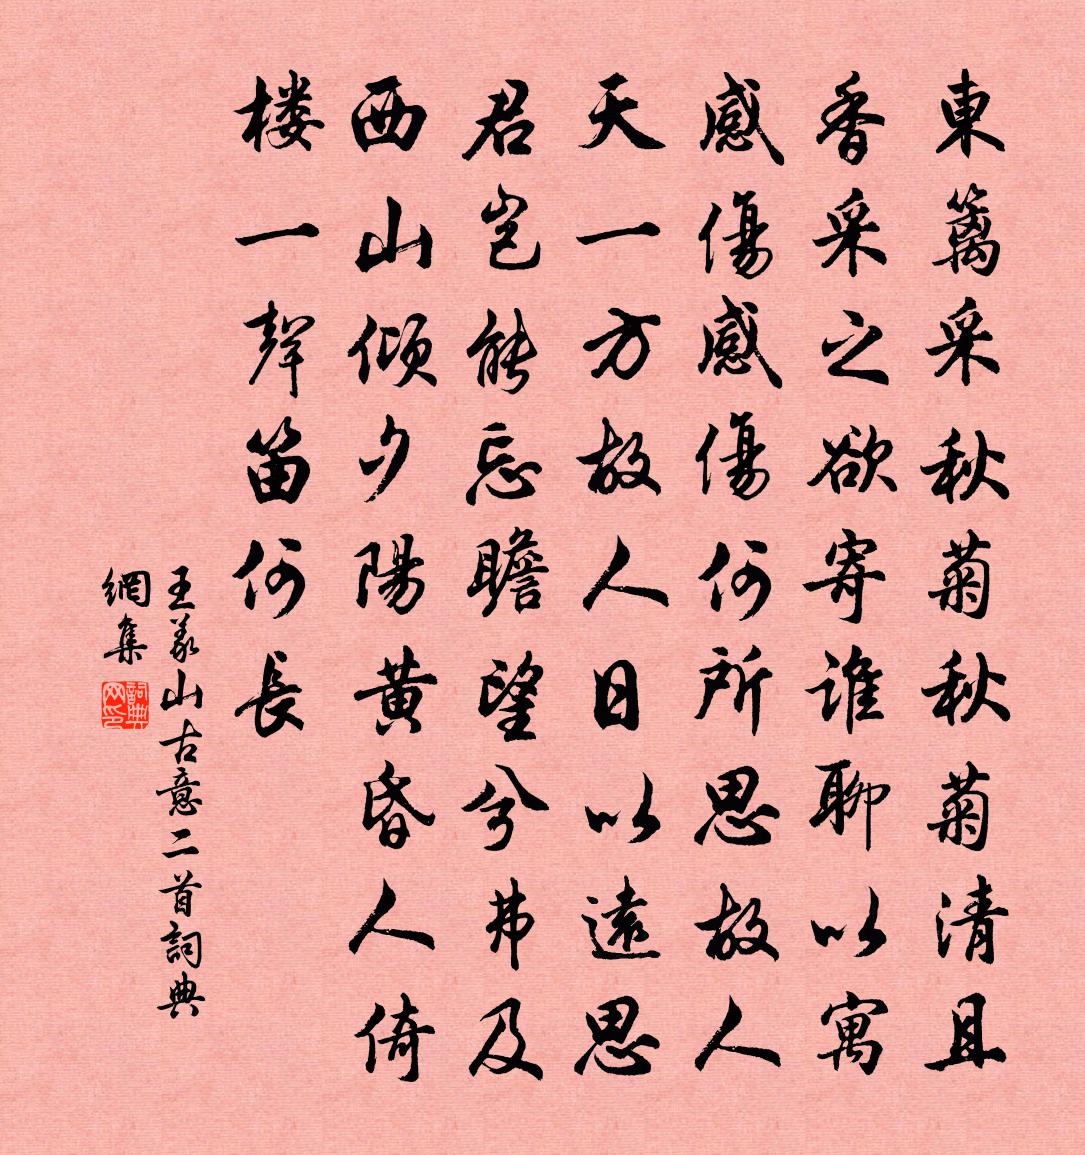 東籬采秋菊秋菊清且
香采之欲寄誰聊以寓
感傷感傷何所思故人
天一方故人日以遠思
君豈能忘瞻望兮弗及
西山傾夕陽黃昏人倚
楼一聲笛何長
王義山古意二首詞典
網集
詞典
网印